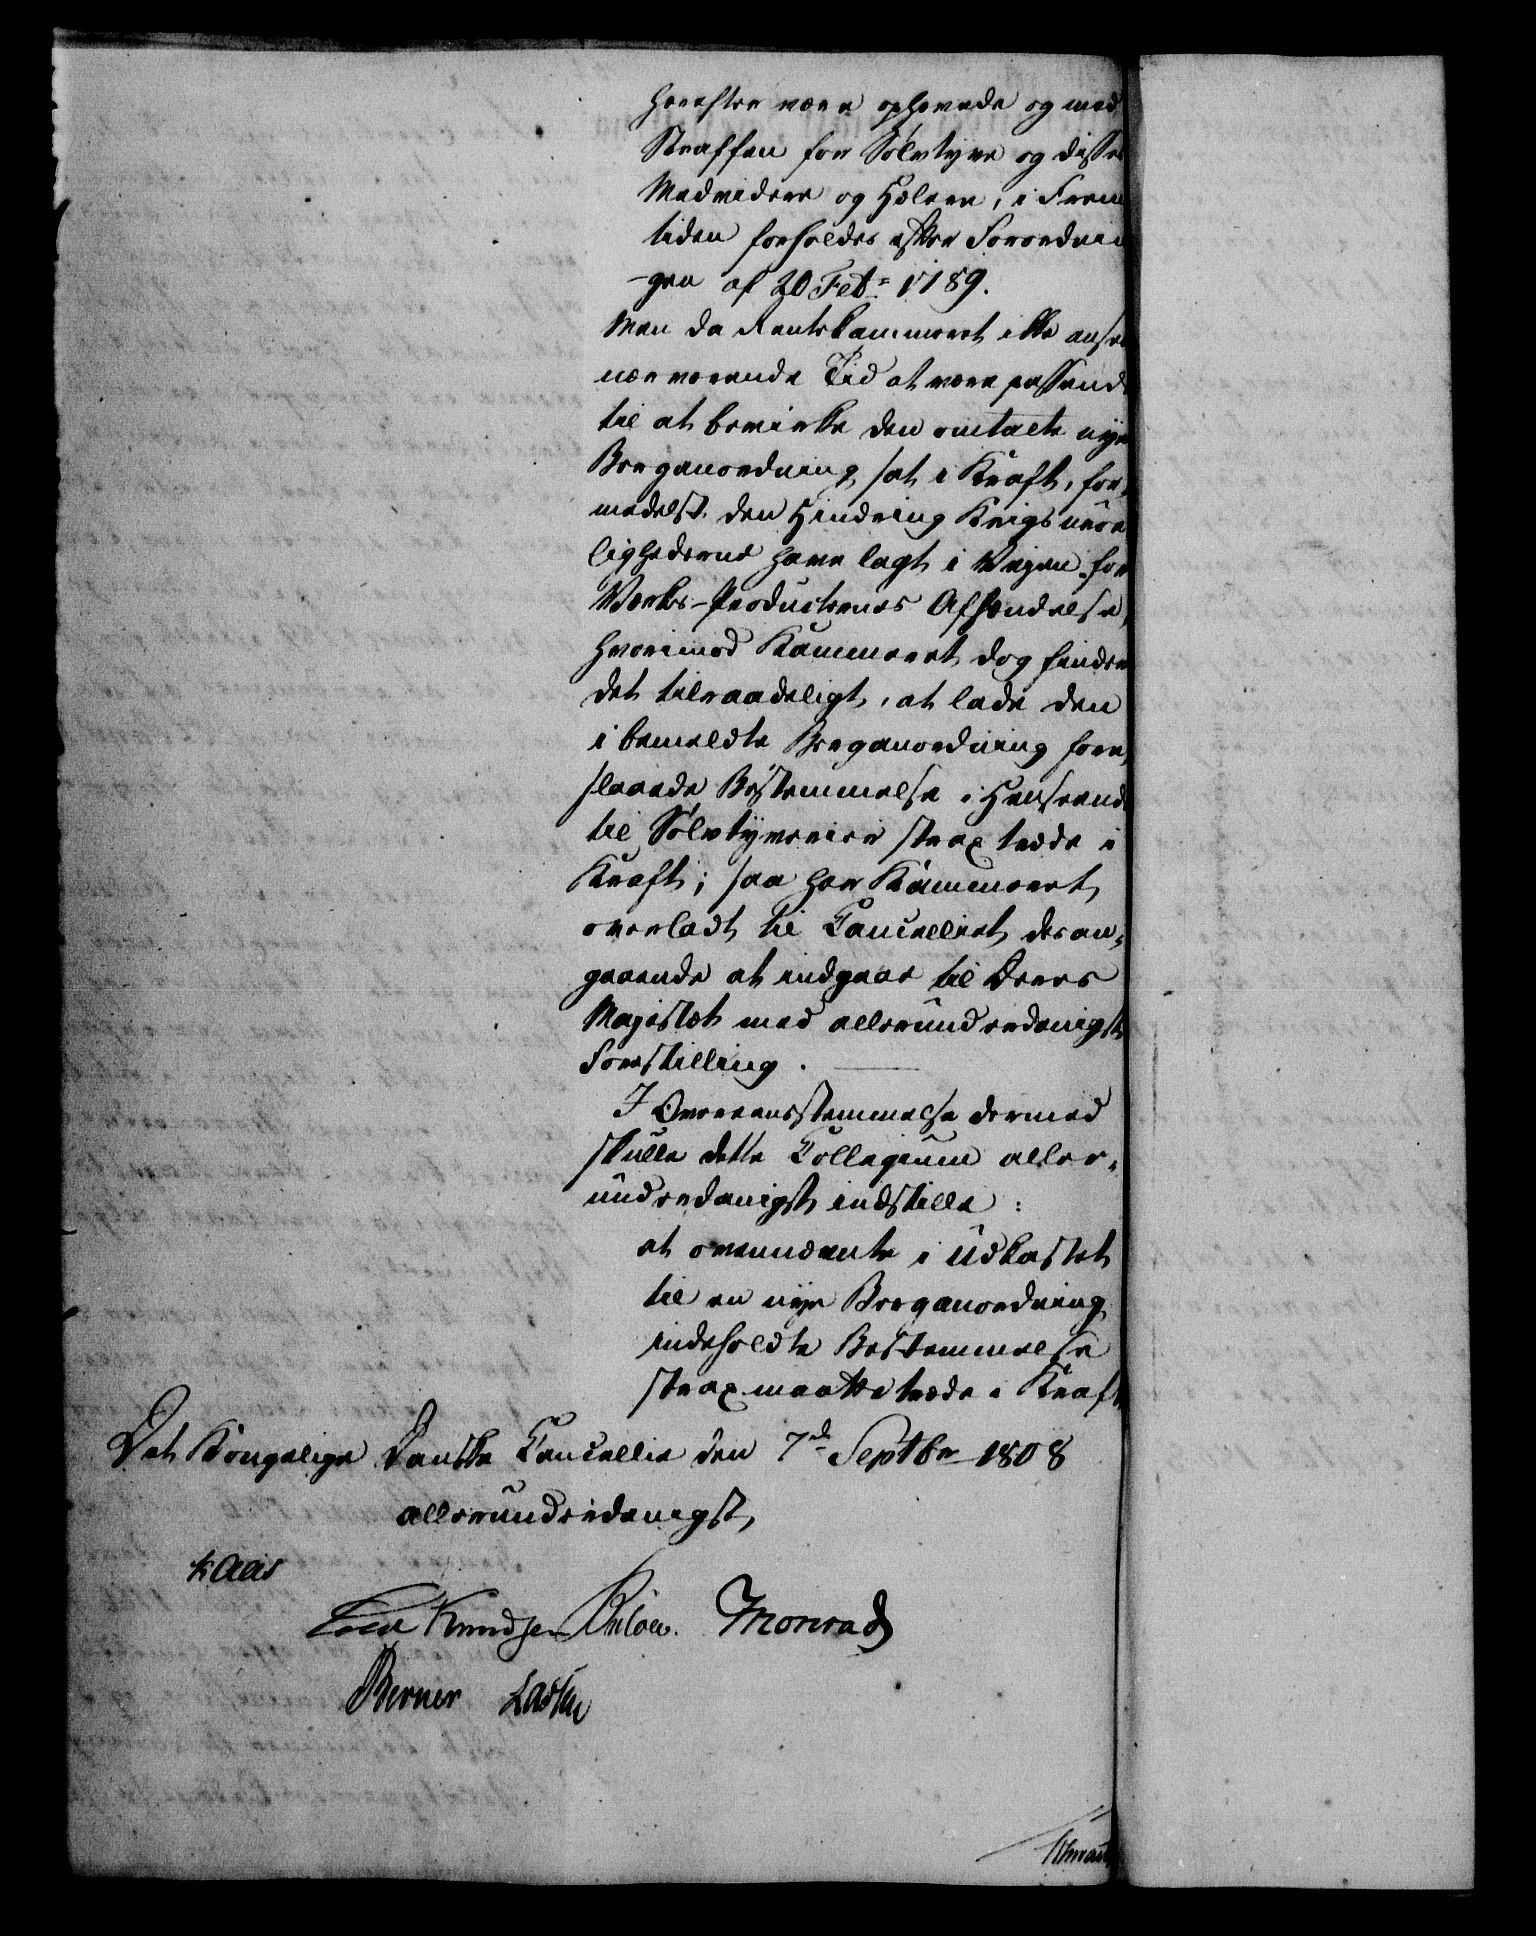 herefter være ophævede og med
Straffen for Sølvtyve og disses
Medvidere og Hælere, i Frem
tiden forholdes efter Forordnin
-gen af 20 Feb. 1789.
Men da Rentekammeret ikke anseer
nærværende Tid at være passende
til at bevirke den omtalte nye
Berganordning sat i Kraft, for-
medelst den Hindring Krigsuroe
lighederne have lagt i Vejen for
Værks-Producternes Afhændelse,
hvorimod Kammeret dog finder
det tilraadeligt, at lade den
i bemeldte Berganordning fore-
slaaede Bestemmelse i Henseende
til Sølvtyverier strax træde i
Kraft; saa har Kammeret
overladt til Cancelliet desan-
gaaende at indgaae til Deres
Majestæt med allerunderdanigst
Forestilling.
I Overeensstemmelse dermed
skulle dette Collegium aller-
underdanigst indstille:
at ovennævnte i Udkastet
til en nye Berganordning
indeholdte Bestemmelse
strax maatte træde i Kraft
Det Kongelige Danske Cancellie den 7d Septbr 1808
allerunderdanigst
Kaas
Knudsen Bülow. Monrad
Berner Lassen